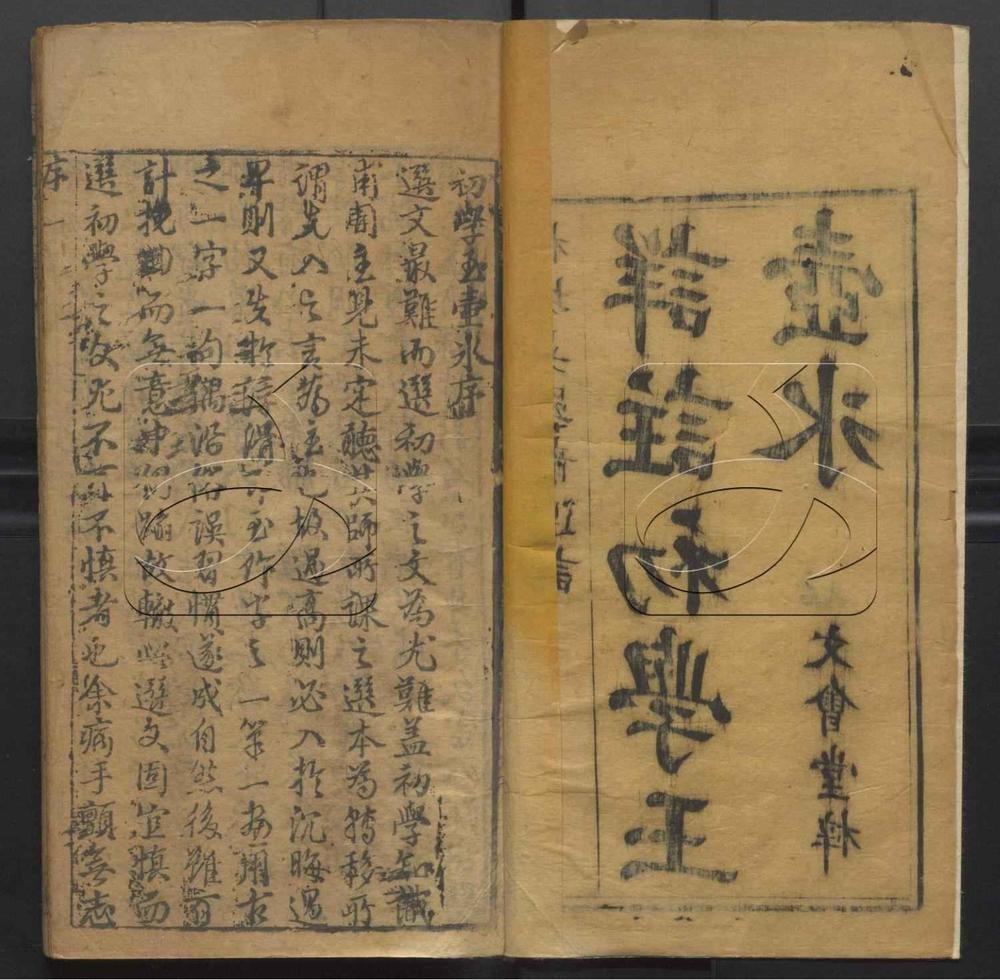 詳註初學玉
壺氷
文會堂梓
初學玉壺氷序
選文最難而選初學之文為尤難蓋初學知識
甫開主見未定聽其師所課之選本為轉移所
謂先入之言為主也故過高則必入於沉晦過
卑則又失於輕滑甚至作字之一筆一畫
之一字一詞偶沿俗誤習慣遂成自然後雖百
計挽回而無意中仍蹈故轍選文固宜慎而
選初學之文尤不可不慎者也余病手顫無志
序 一